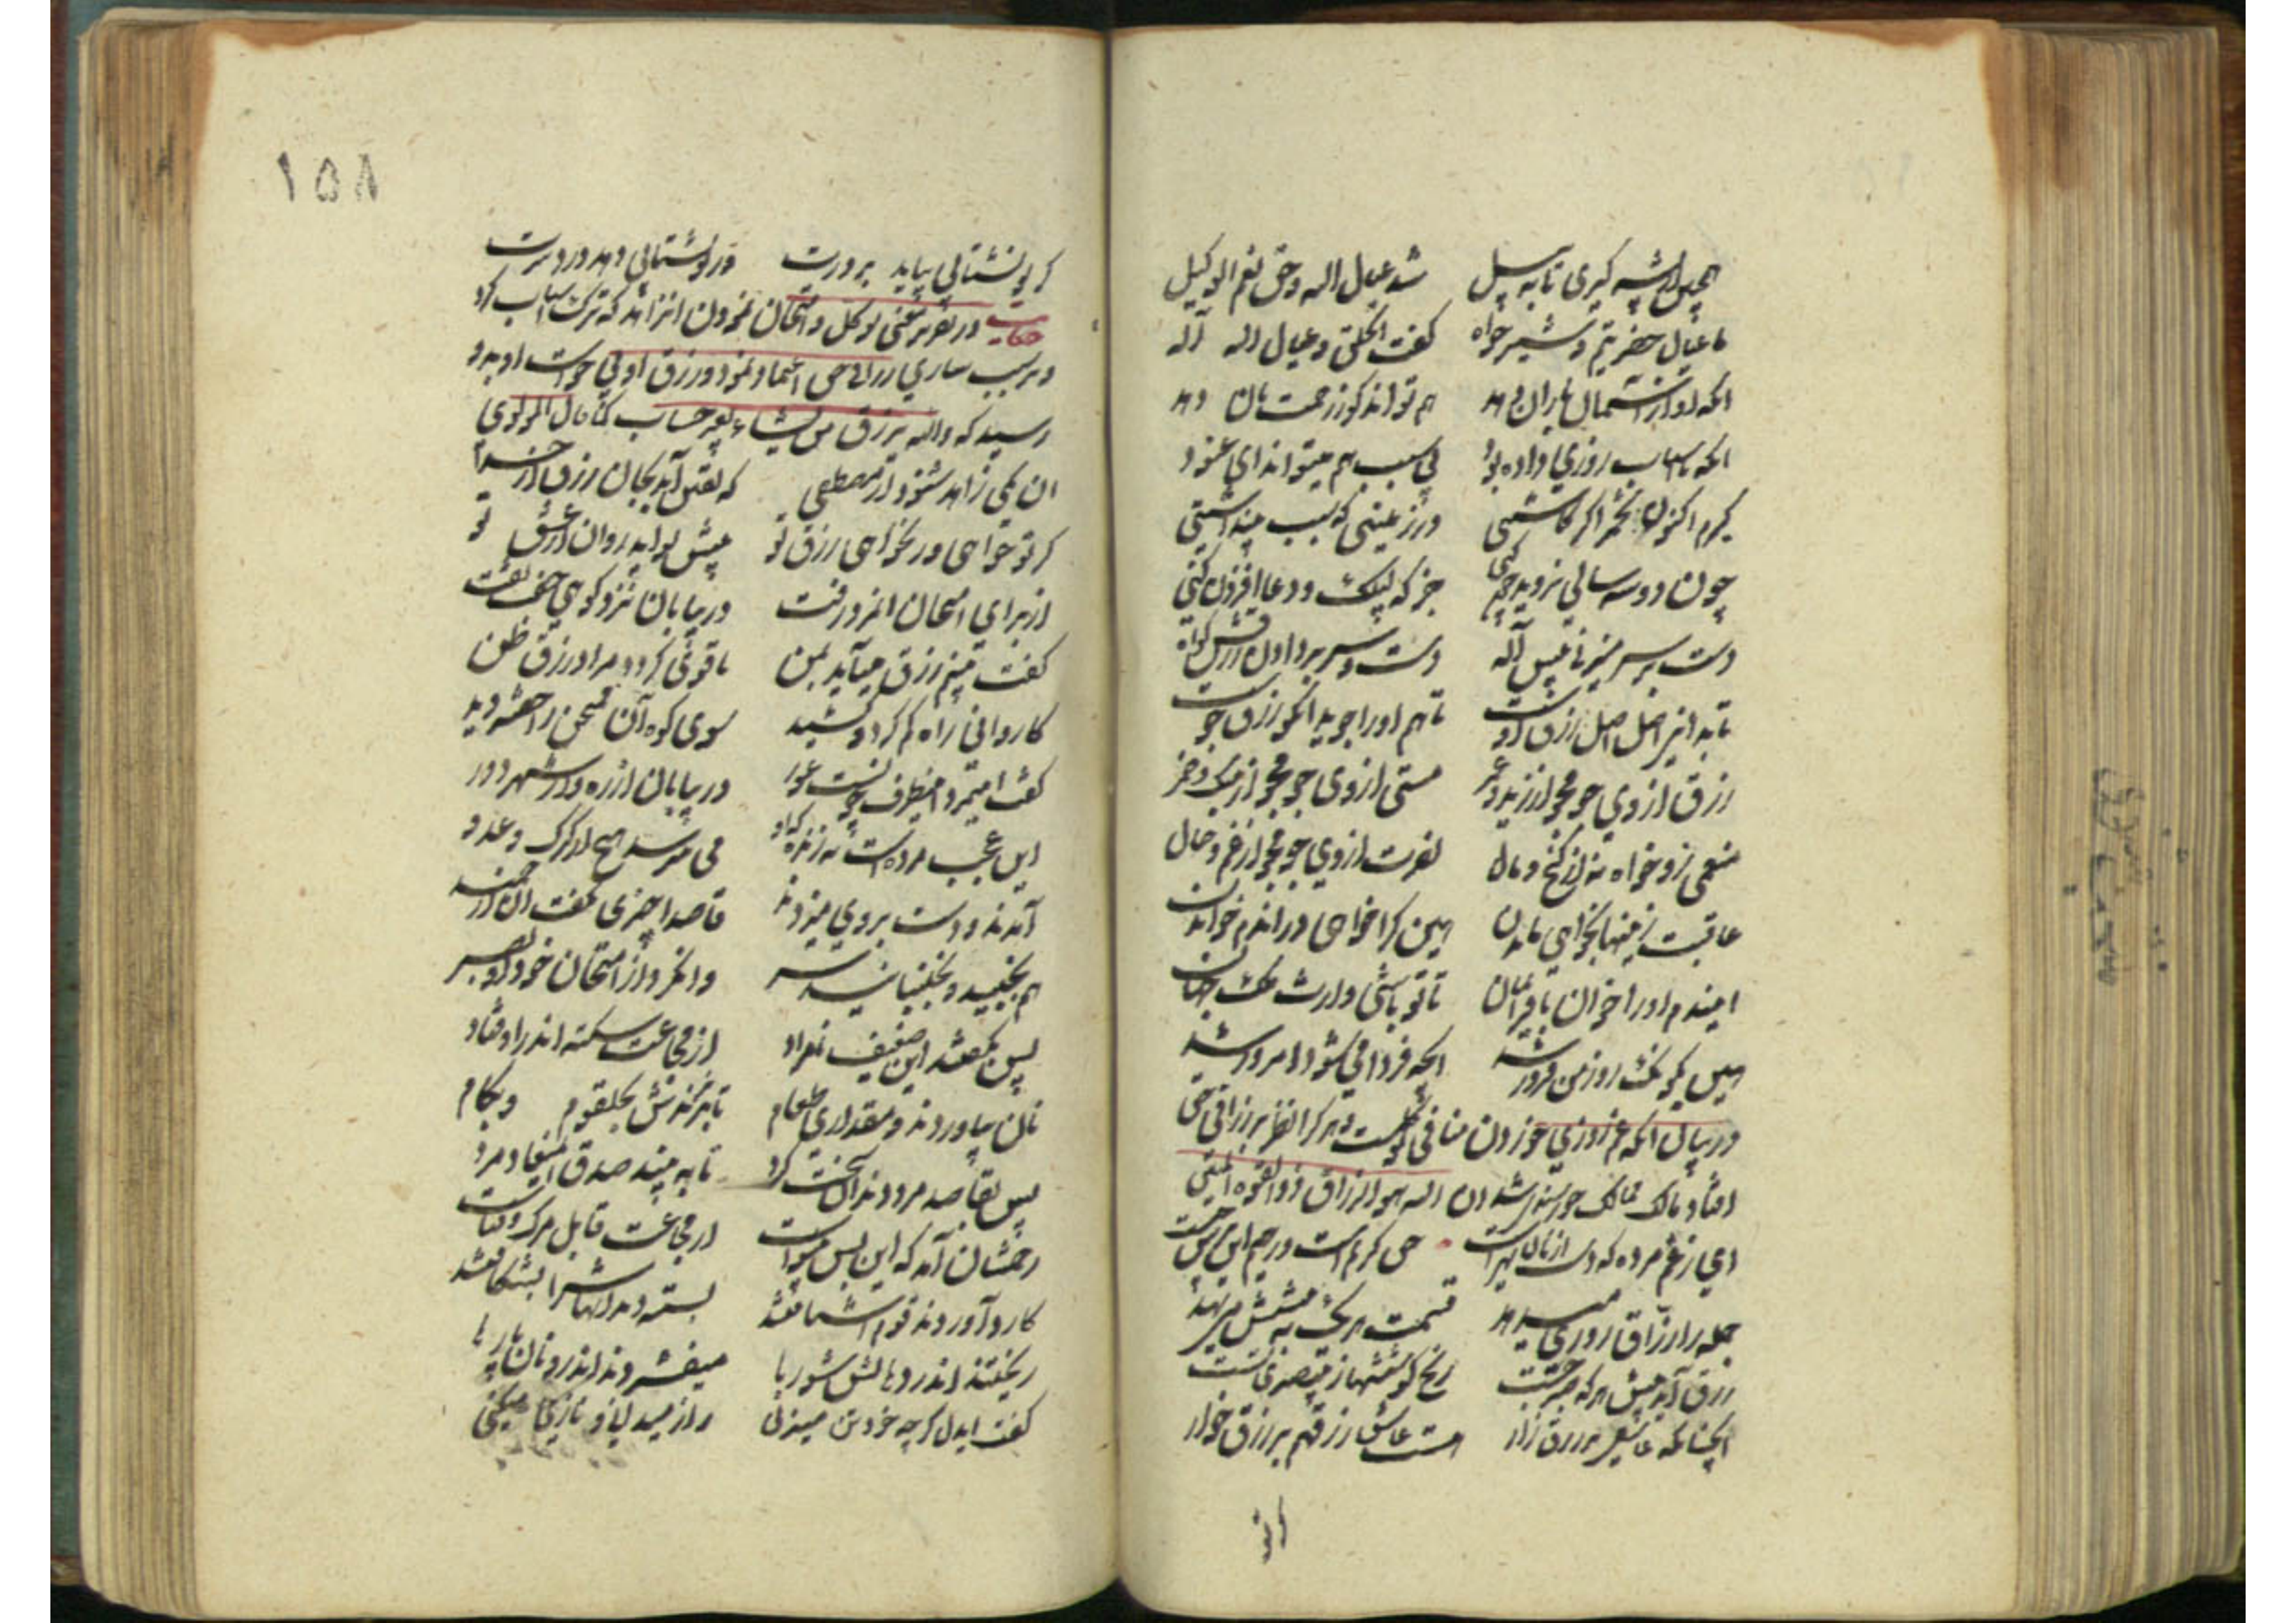 همچنین از پشه گیری تا به پیل    شد عیال الله و حق نعم الوکیل
ما عیال حضرتیم و شیرخواه    گفت الخلق و عیال اله آله
آنکه او از آسمان باران دهد    هم تواند کو ز رحمت نان دهد
آنکه با اسباب روزی داده بود    بی سبب هم میتواند ای عنود
گیرم اکنون تخم را گر کاشتی    در زمینی که سبب پنداشتی
چون دو سه سالی نروید چون کنی    جز که لیک و دعا افزون کنی
دست بر سر میزنی پیش آله    دست و سر بر دادن رزقش گواه
تا بدانی اصل اصل رزق اوست    تا هم او را جوید آنکو رزق جوست
رزق از وی جو مجو از زید و عمر    مستی از وی جو مجو از بنگ و خمر
منعمی زو خواه نه از گنج و مال    نصرت از وی جو مجو از عم و خال
عاقبت زینها بخواهی ماندن    هین کرا خواهی در اندم خواندن
ایندم او را خوان باقی را بمان    تا تو باشی وارث ملک جهان
هین بگو نک روز من فیروز شد    آنچه فردا می شود امروز شد
در بیان آنکه غم روزی خوردن منافی توکلست و هر کرا نظر بر رزاقی حق
افتاد مالک ممالک خورسندی شد ان اله هو الرزاق ذو القوة المتین
ای ز غم مرده که دست از نان تهیست    حق کریم است و رحیم این ترس چیست
جمله را رزاق روزی میدهد    قسمت هر یک به پیشش مینهد
رزق آید پیش هر که صبر جست    رنج کوششها ز بیصبری تست
آنچنانکه عاشقی بر رزق زار    هست عاشق رزق هم بر رزق خوار
گر تو
۱۵۸
گر تو نشتابی بیاید بر درت    ور تو بشتابی دهد درد سرت
حکایت در تقریر معنی توکل و امتحان نمودن آن زاهد که ترک اسباب کرد
و بر سبب سازی رزاقی حق اعتماد نمود و رزق او بی خواست او بدو
رسید که واله یرزق من یشاء بغیر حساب کما قال المولوی
آن یکی زاهد شنود از مصطفی    که یقین آید بجان رزق از خدا
گر تو خواهی ور نخواهی رزق تو    پیش تو آید روان از عشق تو
از برای امتحان آن مرد رفت    در بیابان نزد کوهی خفت تفت
گفت بینم رزق میآید بمن    تا قوی گردد مرا در رزق ظن
کاروانی راه گم کرد و کشید    سوی کوه آن ممتحن را خفته دید
گفت این مرد اینطرف چونست عور    در بیابان از ره و از شهر دور
این عجب مرده است یا زنده که او    می نترسد هیچ از گرگ و عدو
آمدند و دست بر وی میزدند    قاصدا چیزی نگفت آن ارجمند
هم نجنبید و نجنبانید سر    وا نکرد از امتحان خود او بصر
پس بگفتند این ضعیف نامراد    از مجاعت سکته اندر او فتاد
نان بیاوردند و مقداری طعام    تا بریزندش بحلقوم و بکام
پس بقاصد مرد دندان سخت کرد    تا ببیند صدق آن میعاد مرد
رحمشان آمد که این بس بینواست    از مجاعت قابل مرگ و فناست
کارد آوردند قوم اشتافتند    بسته دندانهاش را بشکافتند
ریختند اندر دهانش شوربا    میفشردند اندرو نان پارها
گفت ای دل گرچه خود تن میزنی    راز میدانی و نازی میکنی